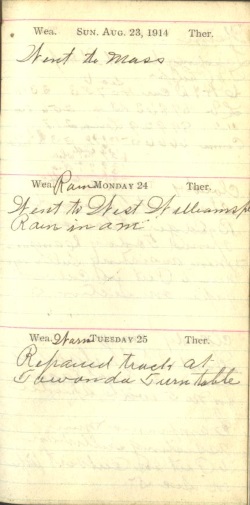 Wea. SUN. AUG. 23, 1914 Ther.
Went to Mass
Wea. Rain MONDAY 24 Ther.
Went to West Williamsp
Rain in am
Wea. Warm TUESDAY 25 Ther.
Repaired track at
Towanda Turntable